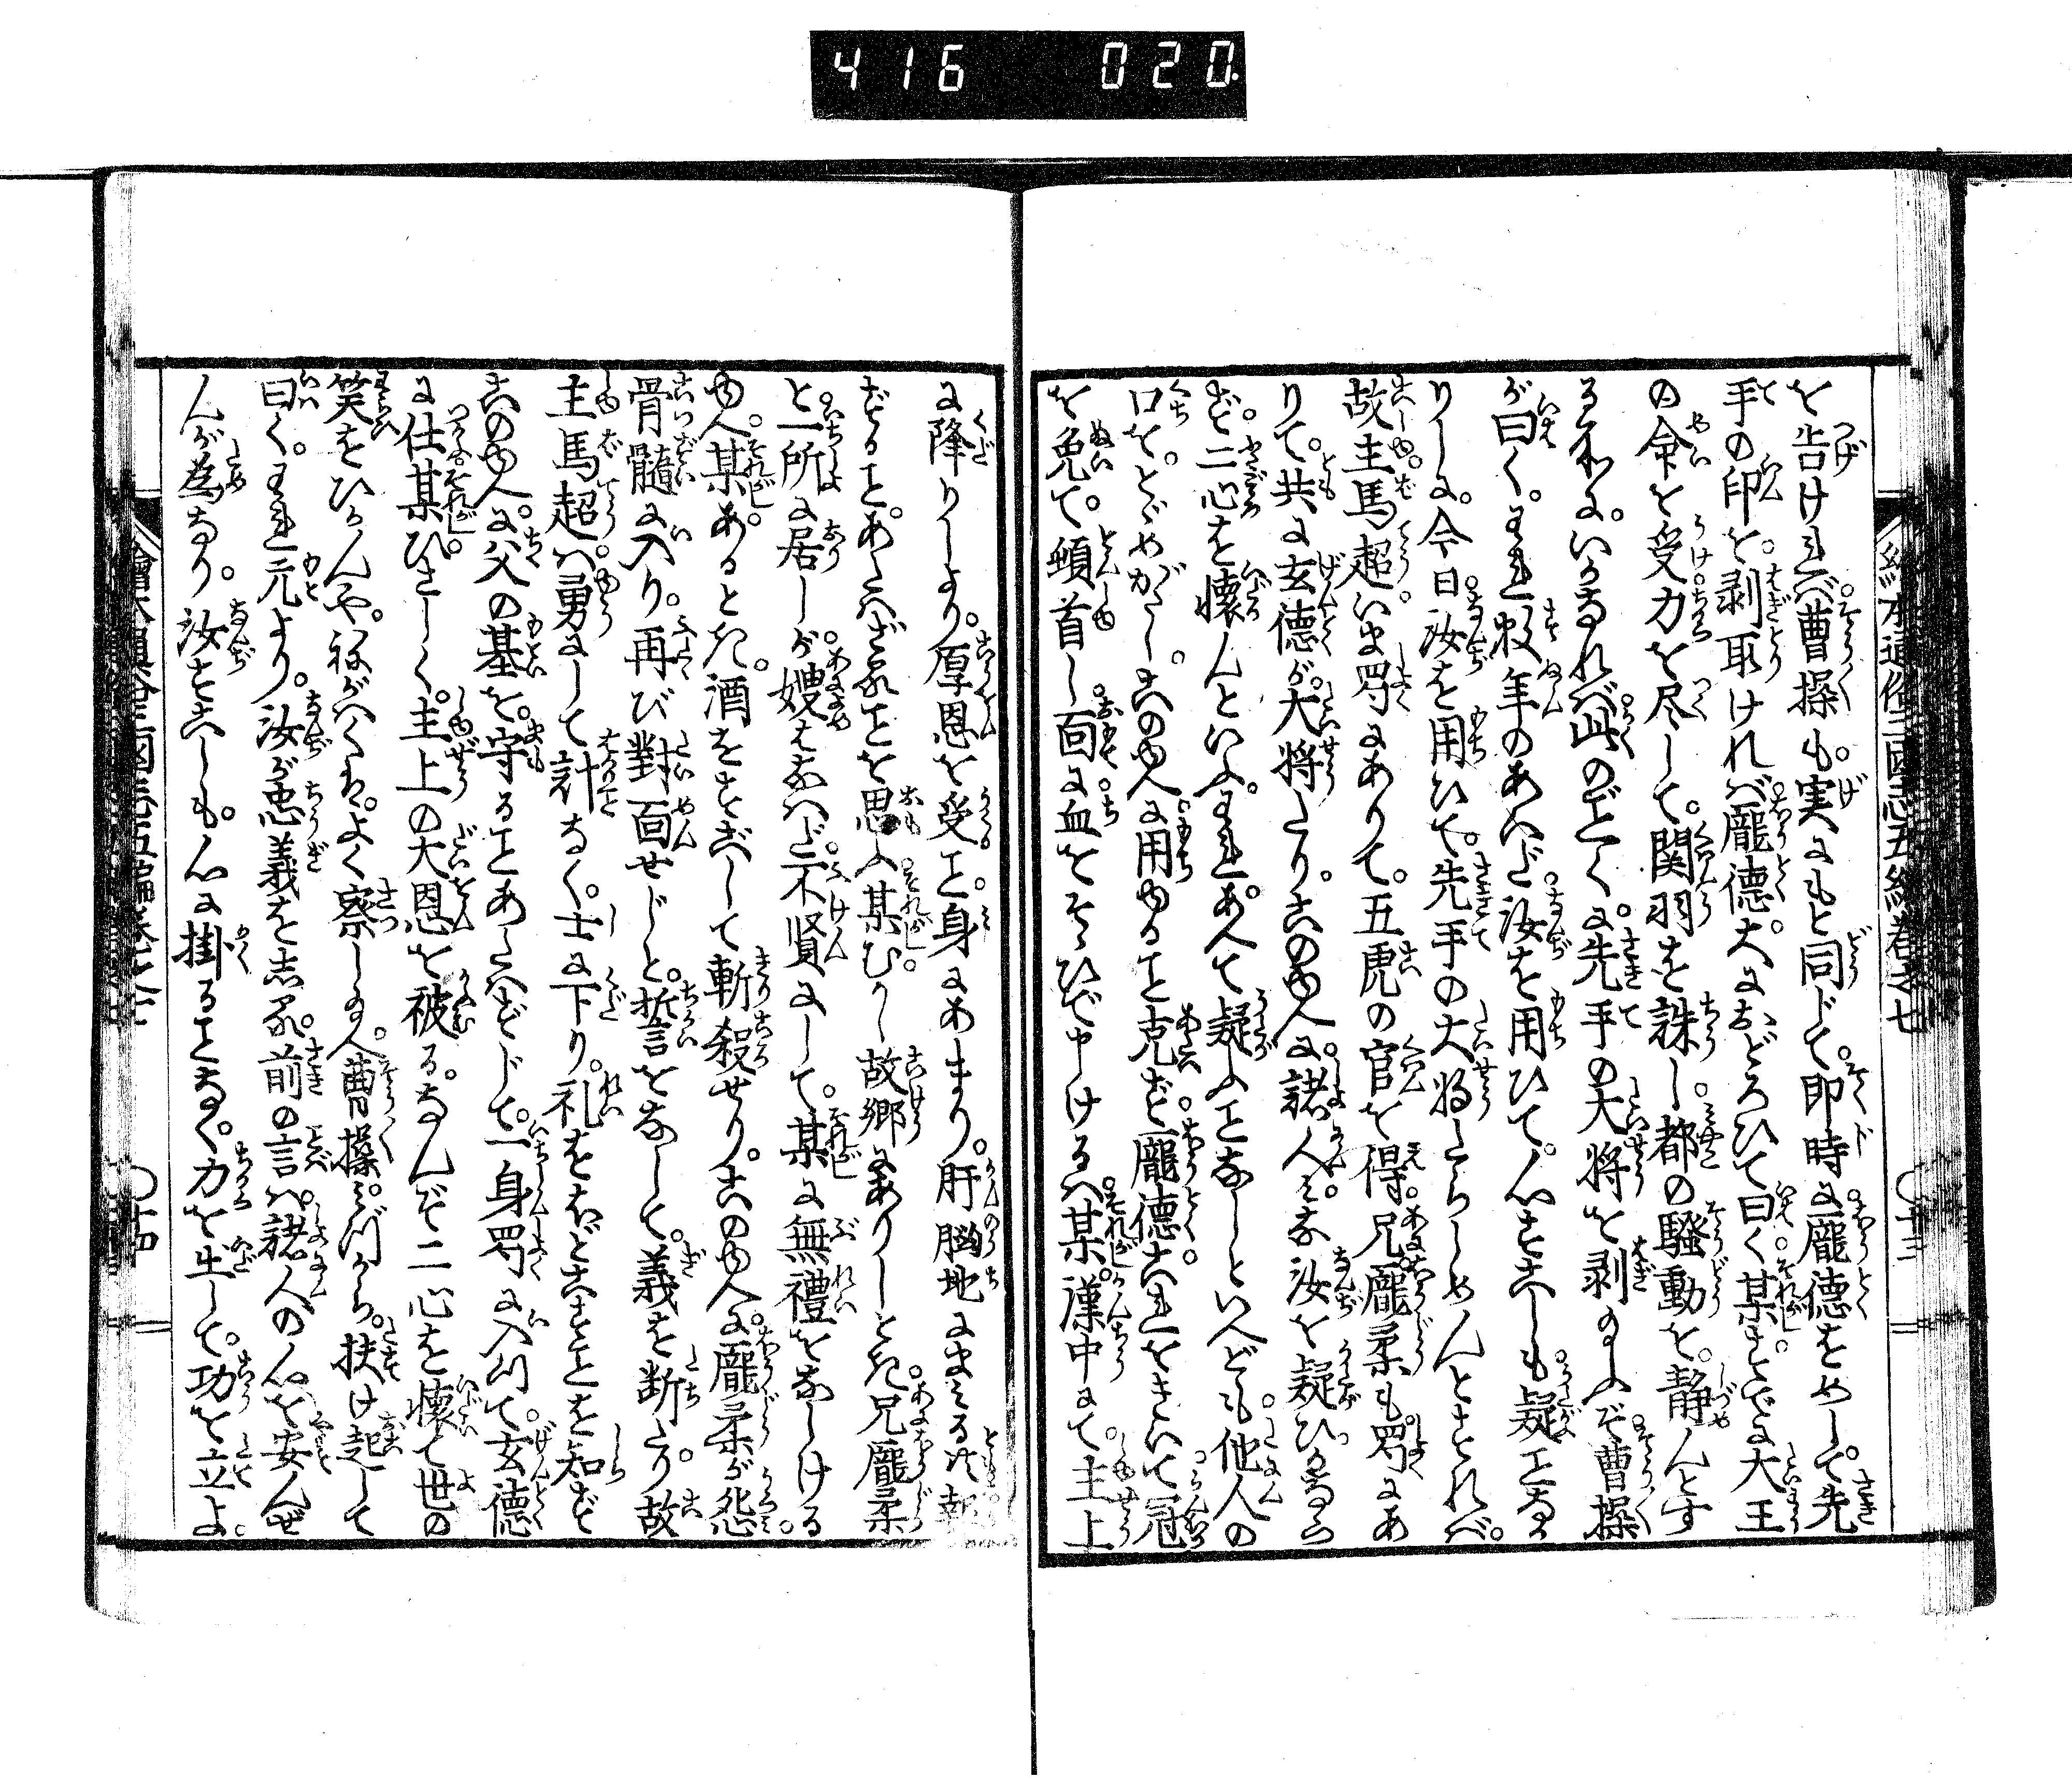 416 020
繪本通俗三國志五編巻之七 〇十三
を告けれバ曹操も実にもと同じて即時に龐德をめして先
手の印を剥取けれバ龐德大におどろひて曰く某まさに大王
の命を受力を尽して関羽を誅し都の騒動を静んとす
る所にいかなれバ此のごとくに先手の大将を剥るふぞ曹操
が曰くわれ数年のあいだ汝を用ひて心をこしも疑ことな
りしに今日汝を用ひて先手の大将たらしめんとすれバ
故主馬超いま蜀にありて五虎の官を得兄龐柔も蜀にあ
りて共に玄德が大将たりこのゆへに諸人みな汝を疑ひかなら
ず二心を懐んといふわれあへて疑ふことなしといへども他人の
口をとゞめがたしこのゆへに用ゆること克ず龐德これをきいて冠
を免て頓首し面に血をそゝひで申けるハ某漢中にて主上
に降りしより厚恩を受こと身にあまり肝脳地にまみるゝ共報
ずることあたハざることを思ふ某むかし故郷にありしとき兄龐柔
と一所に居しが嫂はなハだ不賢にして某に無禮をなしける
ゆへ某あるとき酒をすごして斬殺せりこのゆへに龐柔が怨
骨髓に入り再び對面せじと誓をなして義を断たり故
主馬超ハ勇にして計なく士に下り礼をほどこすことを知ず
このゆへに父の基を守ることあたハずして一身蜀に入て玄德
に仕某ひさしく主上の大恩を被るなんぞ二心を懐て世の
笑をひかんやねがハくハよく察し玉へ曹操みづから扶け起して
曰くわれ元より汝が忠義をしる前の言ハ諸人の心を安んぜ
んが為なり汝すこしも心に掛ることなく力を出して功を立よ
繪本通俗三國志五編巻之七 〇十四